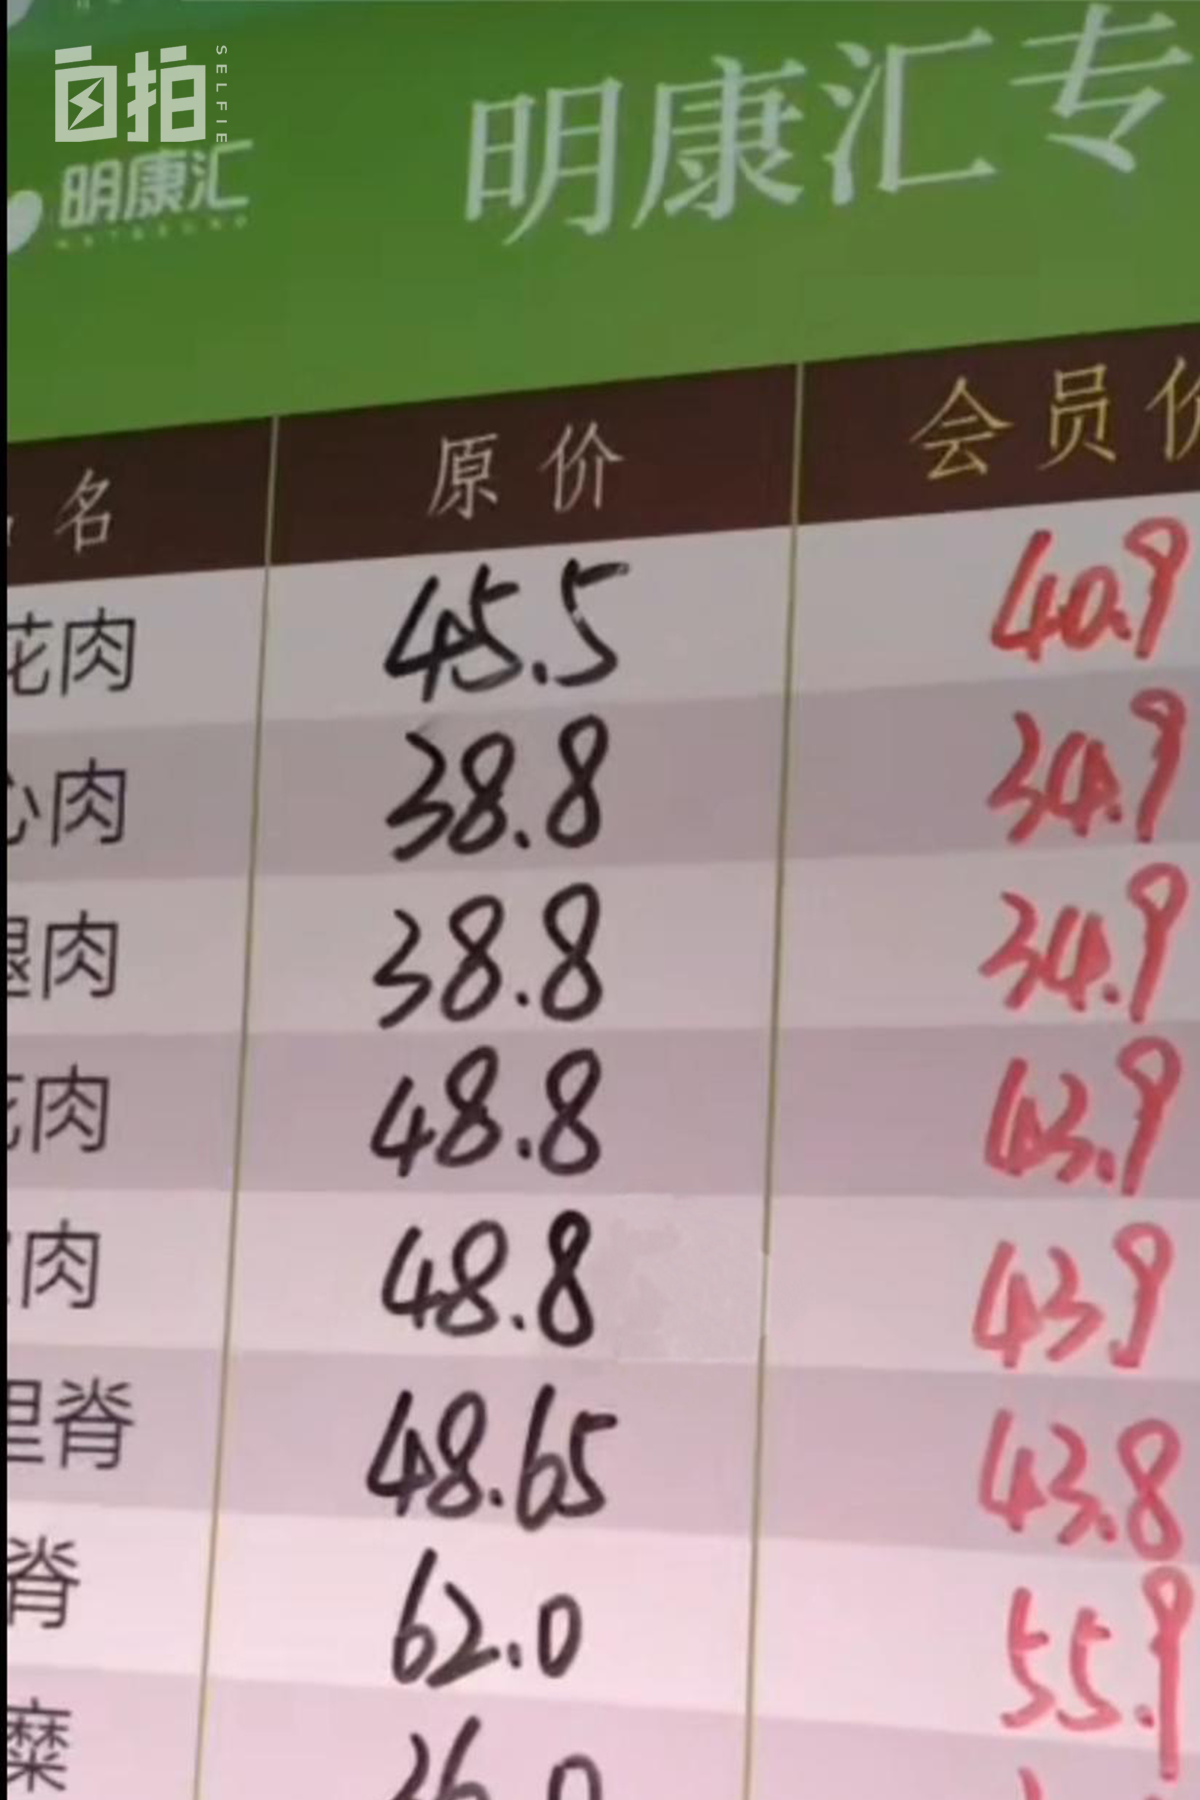 自拍
SELFIE
明康汇
明康汇专
名 原价 会员价
花肉 45.5 40.9
心肉 38.8 34.9
腿肉 38.8 34.9
花肉 48.8 43.9
肉 48.8 43.9
里脊 48.65 43.8
脊 62.0 55.9
糜 36.0